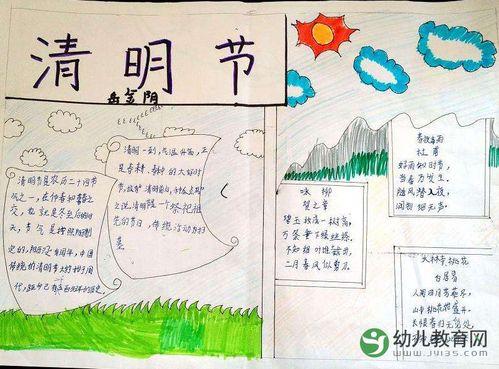 清明节
岳金阴
清明节是农历二十四节
气之一，在仲春和暮春之
交，也就是冬至后的
天，节气是按照阳历
传统的清明节大约始于周
代，
清明一到，气温升高，正
是春耕、春种的大好时
之说清明是一个祭祀祖
先的节日，传统活动为扫
墓
咏柳
贺之章
碧玉妆成一树高，
万条垂下绿丝绦。
不知细叶谁裁出，
二月春风似剪刀。
春夜喜雨
杜甫
好雨知时节，
当春乃发生。
随风潜入夜，
润物细无声。
大林寺桃花
白居易
人间四月芳菲尽，
山寺桃花始盛开。
长恨春归无觅处，
幼儿教育网
www.jy135.com